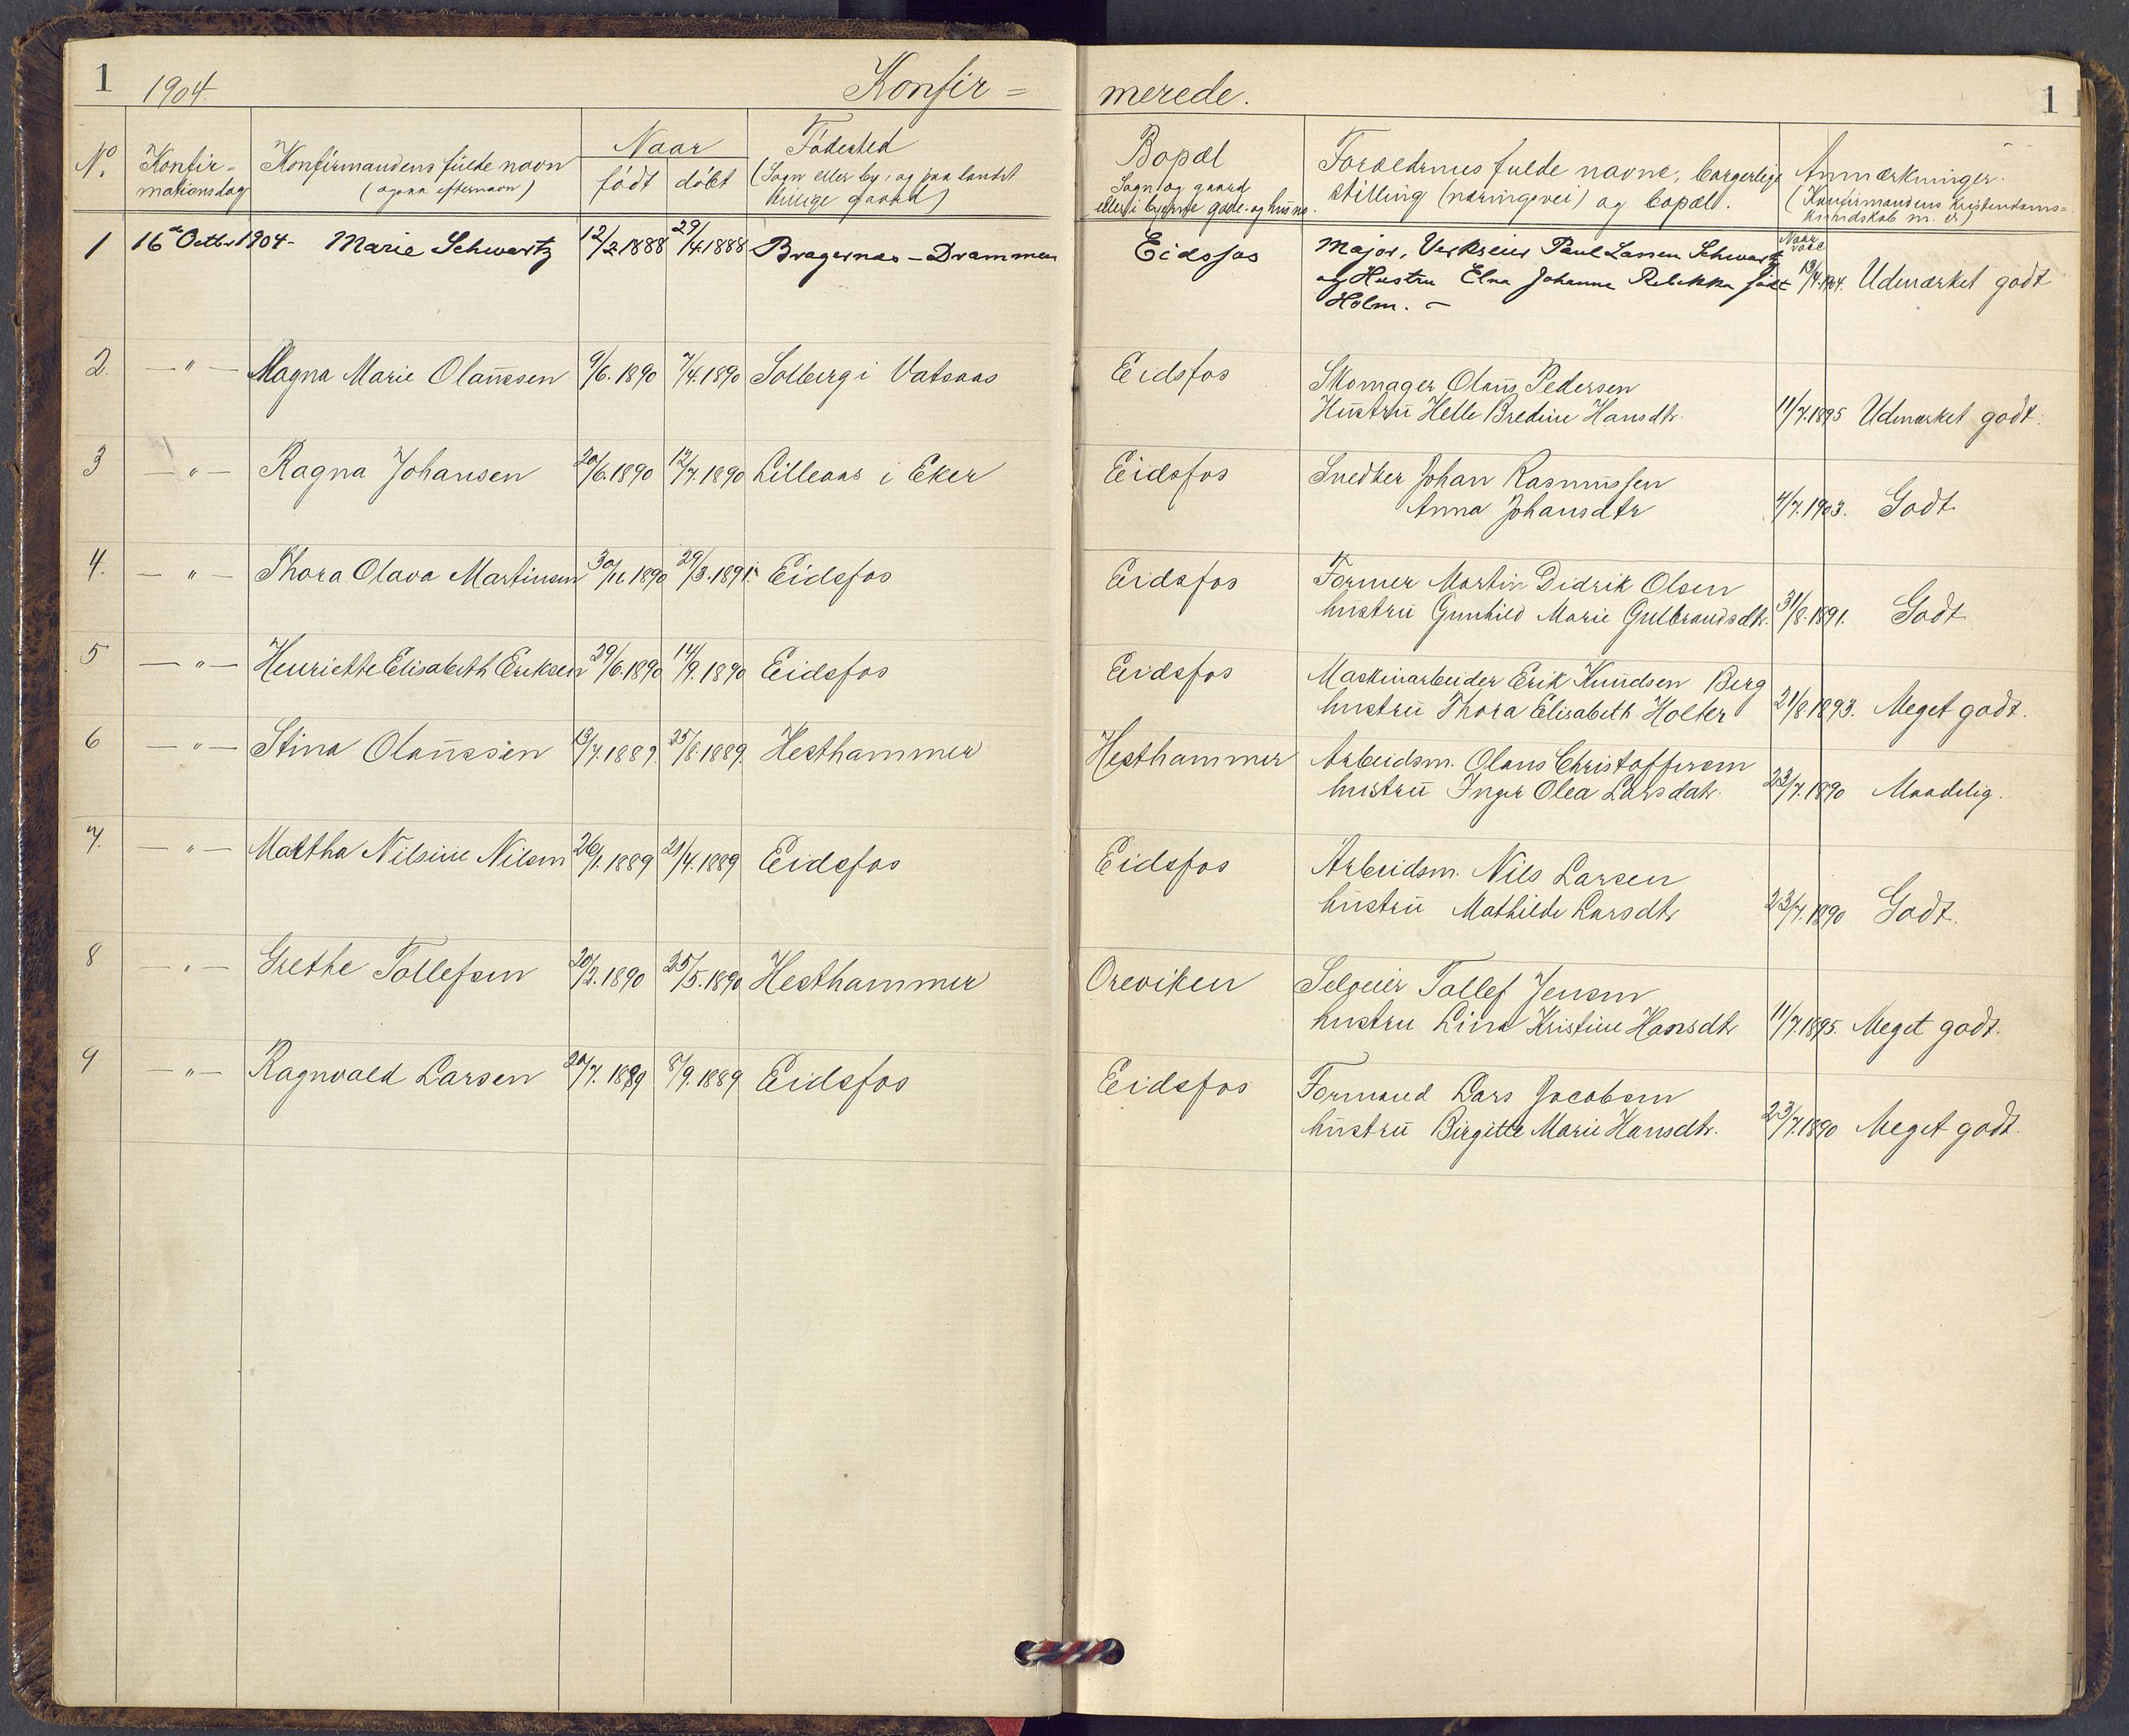 1 1904 Konfir=
merede. 1
No. Konfir-
mationsdag Konfirmandens fulde navn
(ogsaa efternavn) Naar
født døbt Fødested
(Sogn eller by, og paa landet
tillige gaard) Bopæl
Sogn og gaard
eller i byerne gade- og hus no. Forældrenes fulde navne, borgerlige
stilling (næringsvei) og bopæl. Anmærkninger.
(Konfirmandens kristendoms=
kundskab m. v.)
Naar
vacc
1 16de Octbr 1904- Marie Schwartz 12/2 1888 29/4.1888 Bragernæs - Drammen Eidsfos Major, Verkseier Paul Lassen Schwartz
og Hustru Elna Johanne Rebekka født
Holm. - 13/4.1904. Udmærket godt
2. — " — Magna Marie Olaussen 9/6. 1890 7/4.1890 Solberg i Vatsaas Eidsfos Skomager Olaus Pedersen
Hustru Helle Bredine Hansdtr. 11/7.1895 Udmærket godt.
3 — " — Ragna Johansen 20/6.1890 12/7.1890 Lilleaas i Eker Eidsfos Snedker Johan Rasmussen
Anna Johansdtr 4/7.1903. Godt
4. — " — Thora Olava Martinsen 30/11.1890 29/3.1891. Eidsfos Eidsfos Former Martin Didrik Olsen
hustru Gunhild Marie Gulbrandsdtr. 31/8.1891. Godt
5 — " — Henriette Elisabeth Eriksen 29/6.1890 14/9.1890 Eidsfos Eidsfos Maskinarbeider Erik Knudsen Berg
hustru Thora Elisabeth Holter 21/8 1893. Meget godt.
6 — " — Stina Olaussen 13/7.1889. 25/8.1889. Hesthammer Hesthammer Arbeidsm. Olaus Christoffersen
hustru Inger Olea Larsdatr. 23/7.1890 Maadelig.
7. — " — Martha Nilsine Nilsen 26/1.1889 21/4.1889 Eidsfos Eidsfos Arbeidsm. Nils Larsen
hustru Mathilde Larsdtr 23/7.1890 Godt.
8 — " — Grethe Tollefsen 20/2.1890 25/5.1890 Hesthammer Oreviken Selveier Tollef Jensen
hustru Lina Kristine Hansdtr 11/7.1895. Meget godt.
9 — " — Ragnvald Larsen 20/7. 1889 8/9.1889. Eidsfos Eidsfos Formand Lars Jacobsen
hustru Birgitte Marie Hansdtr. 23/7.1890 Meget godt.